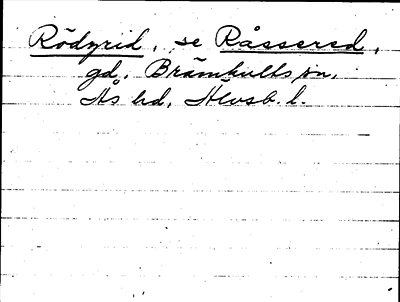 Rödyrid, se Råssered,
gd, Brämhults sn,
Ås hd, Älvsb. l.